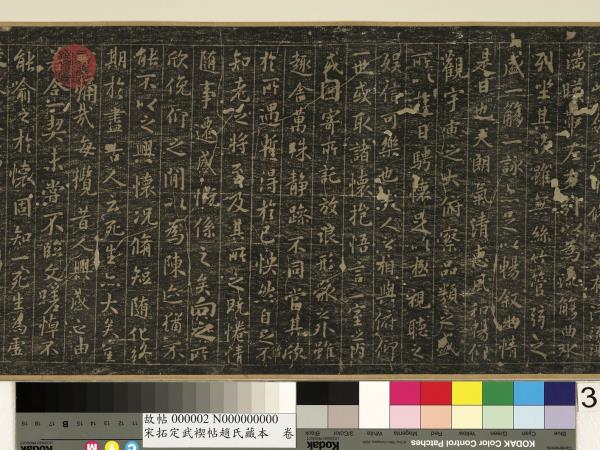 湍暎帶左右引以為流觴曲水
列坐其次雖無絲竹管弦之
盛一觴一詠亦足以暢敘幽情
是日也天朗氣清惠風和暢仰
觀宇宙之大俯察品類之盛
所以遊目騁懷足以極視聽之
娛信可樂也夫人之相與俯仰
一世或取諸懷抱悟言一室之內
或因寄所託放浪形骸之外雖
趣舍萬殊靜躁不同當其欣
於所遇蹔得於己怏然自足不
知老之將至及其所之既惓情
隨事遷感慨係之矣向之所
欣俛仰之閒以為陳迹猶不
能不以之興懷況脩短隨化終
期於盡古人云死生亦大矣豈
不痛哉每攬昔人興感之由
若合一契未嘗不臨文嗟悼不
能喻之於懷固知一死生為虛
故帖 000002 N000000000
宋拓定武禊帖趙氏藏本 卷
Black
3/Color
White
Magenta
Red
Yellow
Green
Cyan
Blue
KODAK Color Control Patches
Kodak
B
M
Y
C
3